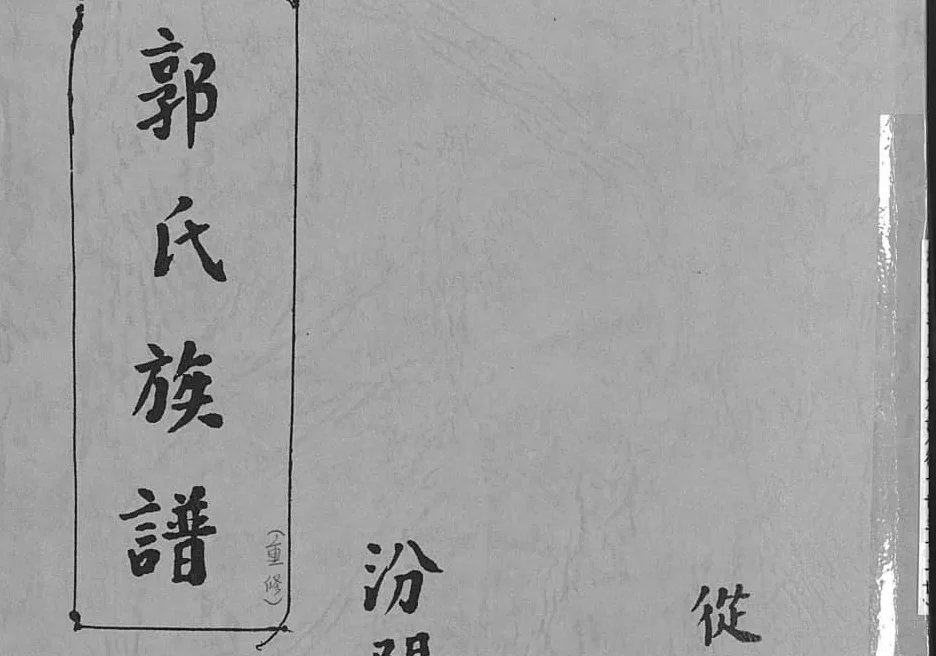 從
汾
郭氏族譜
(重修)